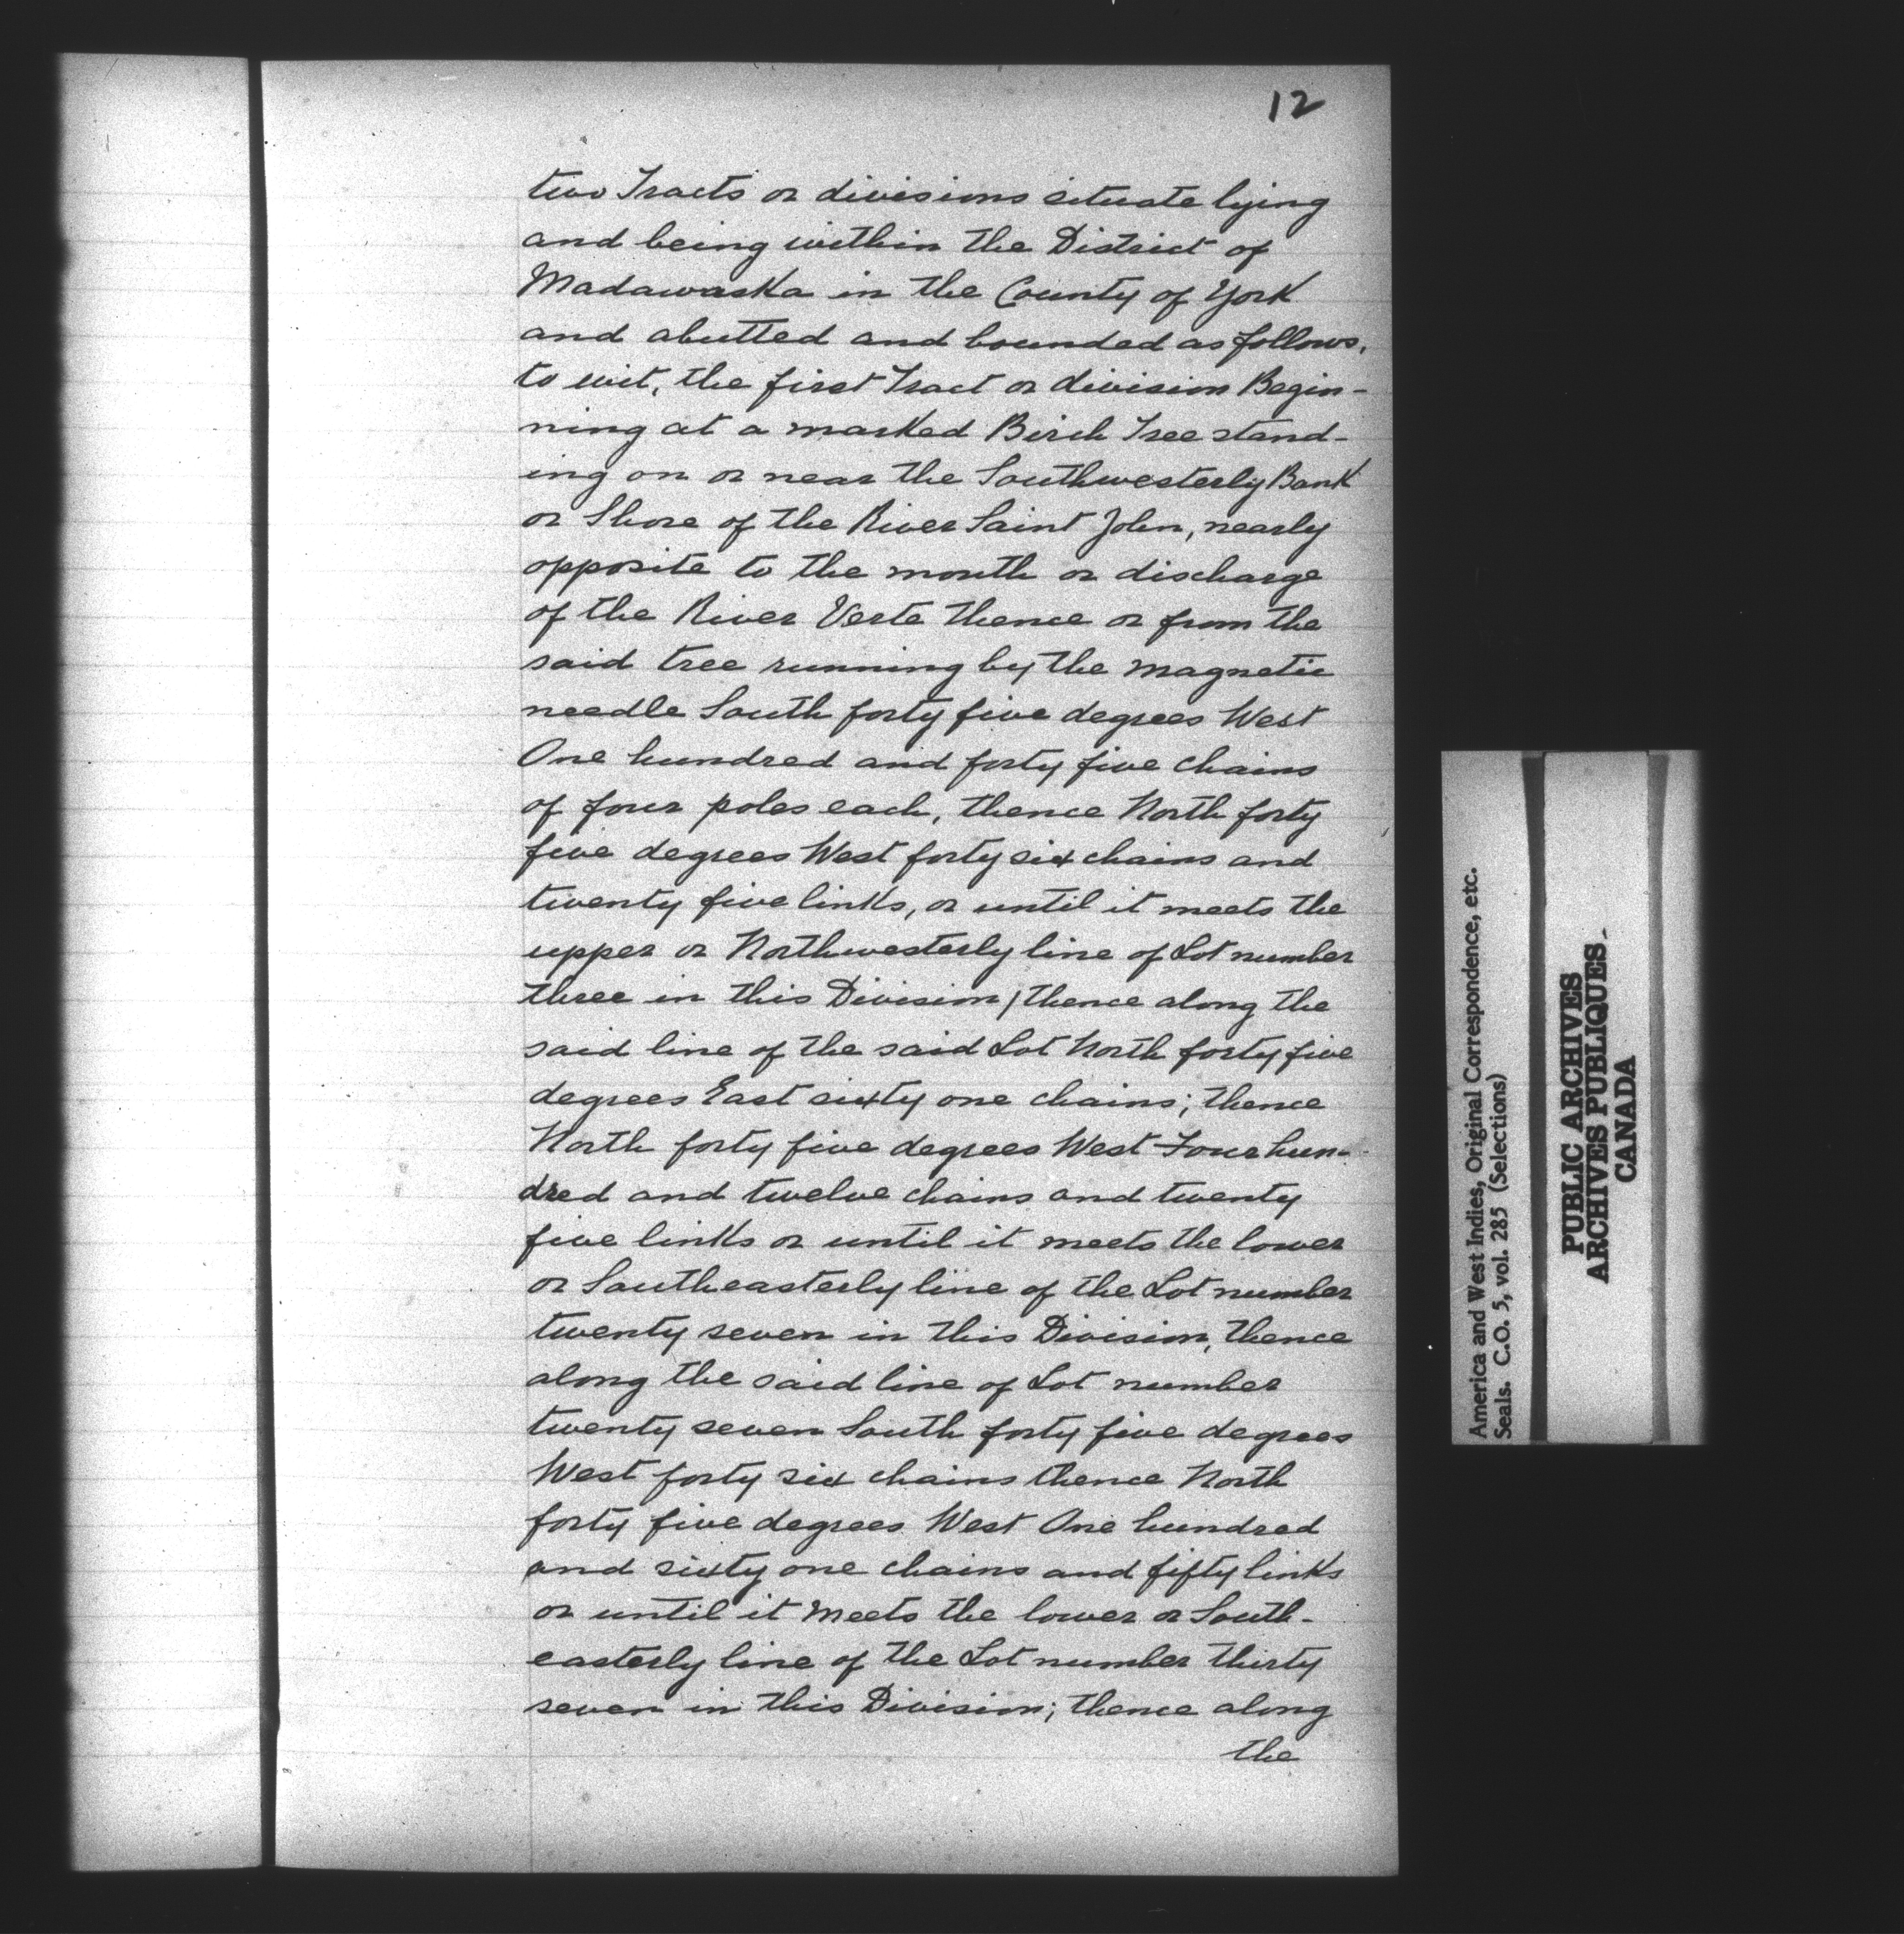 12
two Tracts or divisions situate lying
and being within the District of
Madawaska in the County of York
and abutted and bounded as follows,
to wit, the first Tract or division Begin-
ning at a marked Birch Tree stand-
ing on or near the Southwesterly Bank
or Shore of the River Saint John, nearly
opposite to the mouth or discharge
of the River Verte thence or from the
said tree running by the magnetic
needle South forty five degrees West
One hundred and forty five chains
of four poles each, thence North forty
five degrees West forty six chains and
twenty five links, or until it meets the
upper or Northwesterly line of Lot number
three in this Division, thence along the
said line of the said Lot North forty five
degrees East sixty one chains; thence
North forty five degrees West Four hun-
dred and twelve chains and twenty
five links or until it meets the lower
or Southeasterly line of the Lot number
twenty seven in this Division, thence
along the said line of Lot number
twenty seven South forty five degrees
West forty six chains thence North
forty five degrees West One hundred
and sixty one chains and fifty links
or until it meets the lower or South-
easterly line of the Lot number thirty
seven in this Division; thence along
the
America and West Indies, Original Correspondence, etc.
Seals. C.O. 5, vol. 285 (Selections)
PUBLIC ARCHIVES
ARCHIVES PUBLIQUES
CANADA